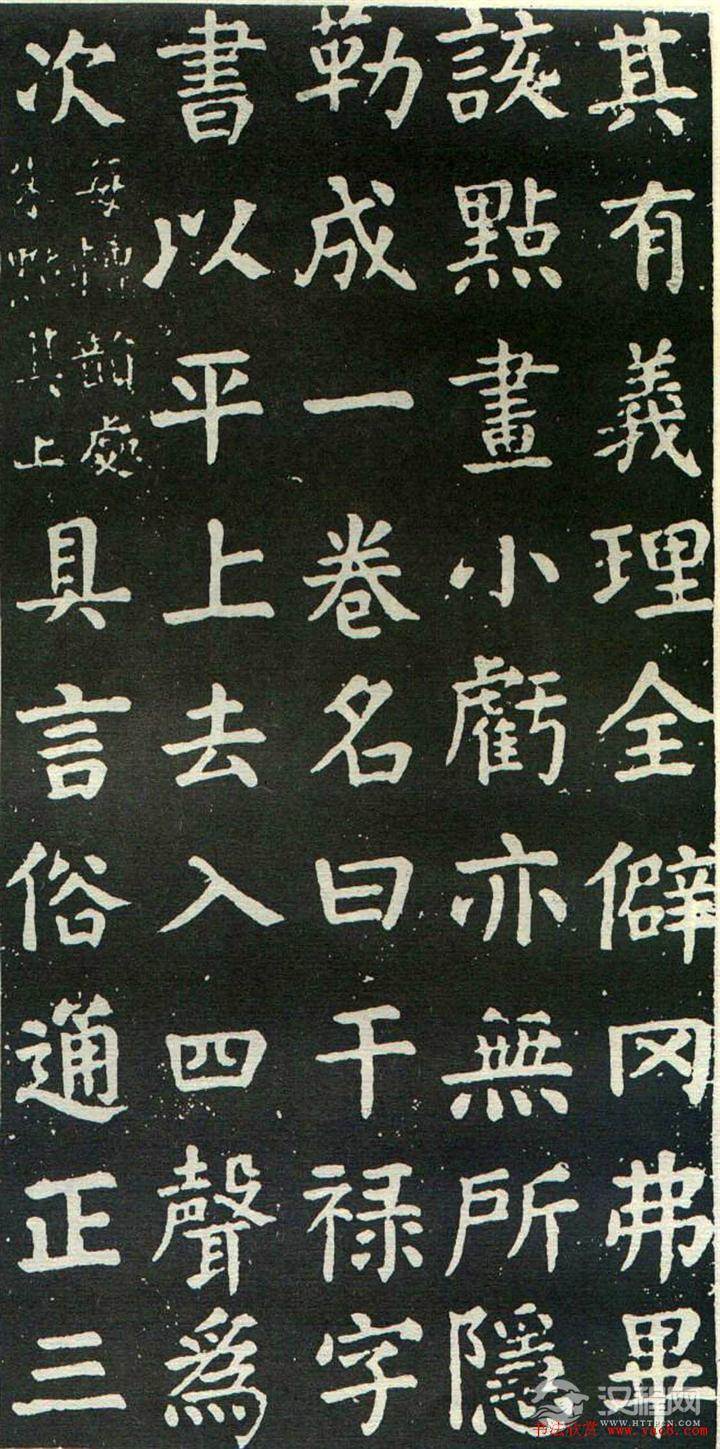 其有義理全僻冈弗畢
該點畫小虧亦無所隱
勒成一卷名曰干禄字
書以平上去入四聲為
次每轉韻處朱點其上具言俗通正三
汉程网
WWW.HTTPCN.COM
书法欣赏 www.yac8.com